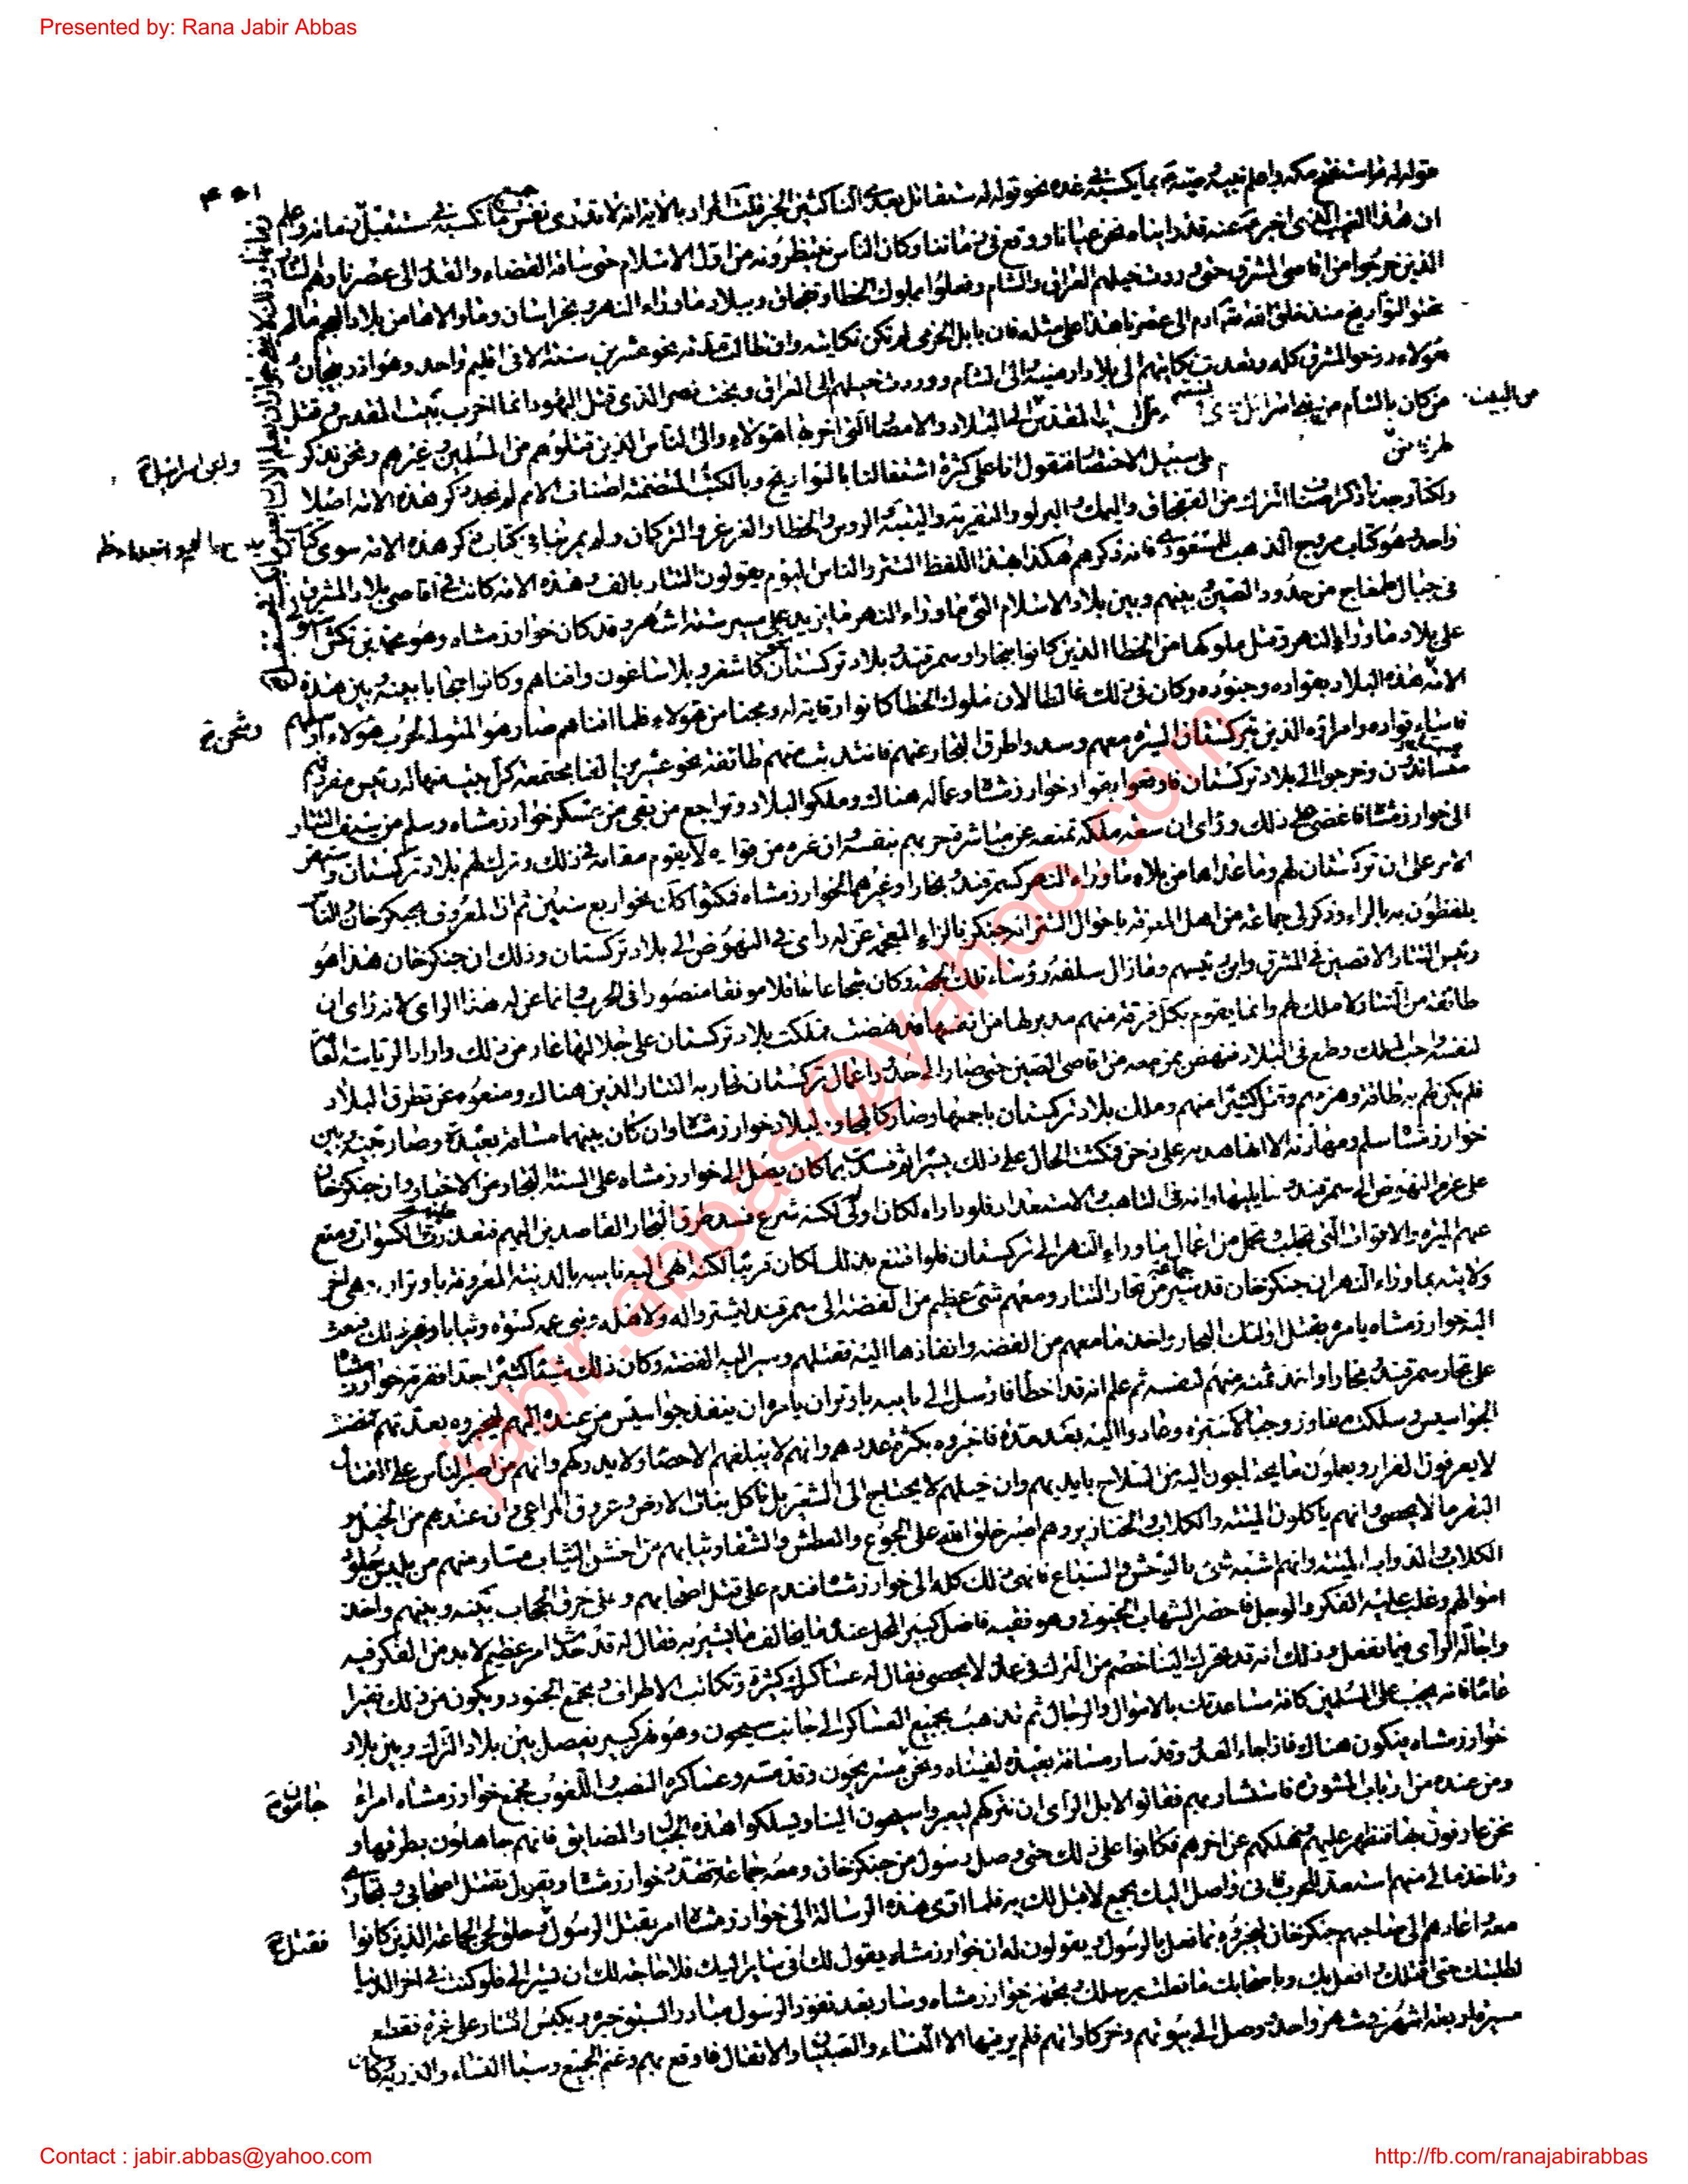 Presented by: Rana Jabir Abbas
قوله له ستقاتل بعدى الناكثين الخبر قلت المراد بالآية انه لا تدرى نفس جميع ما تكسبه في مستقبل زمانها
ان هذا الغيب الذى اخبر ع عنه قد رايناه نحن عيانا ووقع في زماننا وكان الناس ينتظرونه من اول الاسلام حتى ساقه القضاء والقدر الى عصرنا وهم التتار
الذين خرجوا من اقاصى المشرق حتى وردت خيلهم العراق والشام وفعلوا بملوك الخطا وقفجاق وببلاد ما وراء النهر وبخراسان وما والاها من بلاد العجم ما لم
تحتو التواريخ منذ خلق الله تع ادم الى عصرنا هذا على مثله فان بابك الخرمى لم تكن نكايته وان طالت مدته نحو عشرين سنة الا في اقليم واحد وهو اذربيجان
هؤلاء دوخوا المشرق كله وتعدت نكايتهم الى بلاد ارمينية والى الشام ووردت خيلهم الى العراق وبخت نصر الذى قتل اليهود انما اخرب بيت المقدس وقتل
من كان بالشام من بنى اسرائيل واى نسبة بيت المقدس الى البلاد والامصار التى اخربها هؤلاء والى الناس الذين قتلوهم من المسلمين وغيرهم ونحن نذكر
طرفا من على سبيل الاختصار فنقول انا على كثرة اشتغالنا بالتواريخ وبالكتب المتضمنة اصناف الامم لم نجد ذكر هذه الامة اصلا
ولكنا وجدنا ذكر اصناف الترك من القفجاق واليمك والبرلو والتفرية واليتبة والروس والخطا والغرغر والتركمان ولم يمر بنا في كتاب ذكر هذه الامة سوى كتاب
واحد وهو كتاب مروج الذهب للمسعودى فانه ذكرهم هكذا بهذا اللفظ التتر والناس اليوم يقولون التتار بالف وهذه الامة كانت في اقاصى بلاد المشرق
في جبال طمغاج من حدود الصين بينهم وبين بلاد الاسلام التى ما وراء النهر ما يزيد على مسير ستة اشهر وقد كان خوارزمشاه وهو محمد بن تكش استولى
على بلاد ما وراء النهر وقتل ملوكها من الخطا الذين كانوا ببخارا وسمرقند وبلاد تركستان نحو كاشغر وبلاساغون وافناهم وكانوا حجابا بينه وبين هذه
الامة وشحن هذه البلاد بقواده وجنوده وكان في ذلك غالطا لان ملوك الخطا كانوا وقاية له ومجنا من هؤلاء فلما افناهم صار هو المتولى لحرب هؤلاء او سلمهم
فاساء قواده وامراؤه الذين بتركستان السيرة معهم وسدوا طرق التجار عنهم فانتدبت منهم طائفة نحو عشرين الفا مجتمعة كل بيت منها له رئيس مفرد فهم
متساندون وخرجوا الى بلاد تركستان فاوقعوا بقواد خوارزمشاه وعماله هناك وملكوا البلاد وتراجع من بقى من عسكر خوارزمشاه وسلم من سيف التتار
الى خوارزمشاه فاغضى على ذلك وراى ان سعة ملكه تمنعه عن مباشرة حربهم بنفسه وان غيره من قواده لا يقوم مقامه في ذلك وترك لهم بلاد تركستان واستقر
الامر على ان تركستان لهم وما عداها من بلاد ما وراء النهر كسمرقند وبخارا وغيرهما لخوارزمشاه فمكثوا كذلك نحو اربع سنين ثم ان المعروف بجنكزخان والناس
يلفظونه بالراء وذكر لى جماعة من اهل المعرفة باحوال التتر انه جنكز بالزاء المعجمة عن له راى في النهوض الى بلاد تركستان وذلك ان جنكزخان هذا هو
رئيس التتار الاقصين في المشرق وابن رئيسهم وما زال سلفه رؤساء تلك الجهة وكان شجاعا عاقلا موفقا منصورا في الحرب وانما عن له هذا الراى لانه راى ان
طائفة من التتار لا ملك لهم وانما يقوم بكل فرقة منهم مدبر لها من انفسها قد نهضت فملكت بلاد تركستان على جلالتها غار من ذلك واراد الرياسة العامة
لنفسه واحب الملك وطمع في البلاد فنهض بمن معه من اقاصى الصين حتى صار الى حدود اعمال تركستان فحاربه التتار الذين هناك ومنعوه عن تطرق البلاد
فلم يكن لهم به طاقة وهزمهم وقتل كثيرا منهم وملك بلاد تركستان باجمعها وصار كالمجاور لبلاد خوارزمشاه وان كان بينهما مسافة بعيدة وصار بينه وبين
خوارزمشاه سلم ومهادنة الا انها هدنة على دخن فمكثت الحال على ذلك يسيرا ثم فسدت بما كان يصل الى خوارزمشاه على السنة التجار من الاخبار وان جنكزخان
على عزم النهوض الى سمرقند وما يليها وانه في التاهب والاستعداد فلو داراه لكان اولى لكنه شرع فسد طرق التجار القاصدين اليهم فتعذرت عليهم الكسوات ومنع
عنهم الميرة والاقوات التى تجلب وتحمل من اعمال ما وراء النهر الى تركستان فلو اقتنع بذلك لكان قريبا لكنه انهى اليه نائبه بالمدينة المعروفة باوتران وهى اخر
ولايته بما وراء النهر ان جنكزخان قد سير جماعة من تجار التتار ومعهم شىء عظيم من الفضة الى سمرقند ليشتروا له ولاهله وبنى عمه كسوة وثيابا وغير ذلك فبعث
اليه خوارزمشاه يامره بقتل اولئك التجار واخذ ما معهم من الفضة وانفاذها اليه فقتلهم وسير اليه الفضة وكان ذلك شيئا كثيرا جدا ففرقه خوارزمشاه
على تجار سمرقند وبخارا واخذ ثمنه منهم لنفسه ثم علم انه قد اخطا فارسل الى نائبه باوتران يامره ان ينفذ جواسيس من عنده اليهم ليخبروه بعدتهم فمضت
الجواسيس وسلكت مفاوز وجبالا كثيرة وعادوا اليه بعد مدة فاخبروه بكثرة عددهم وانهم لا يبلغهم الاحصاء ولا يدركهم وانهم من اصبر الناس على القتال
لا يعرفون الفرار ويعملون ما يحتاجون اليه من السلاح بايديهم وان خيلهم لا يحتاج الى الشعير بل تاكل نبات الارض وعروق المراعى وان عندهم من الخيل و
البقر ما لا يحصى وانهم ياكلون الميتة والكلاب والخنازير وهم اصبر خلق الله على الجوع والعطش والشقاء وثيابهم من اخشن الثياب مسا ومنهم من يلبس جلود
الكلاب والدواب الميتة وانهم اشبه شىء بالوحش والسباع فانهى ذلك كله الى خوارزمشاه فندم على قتل اصحابهم وعلى خرق الحجاب بينه وبينهم واخذ
اموالهم وغلب عليه الفكر والوجل فاحضر الشهاب الخيوفى وهو فقيه فاضل كبير المحل عنده لا يخالف ما يشير به فقال له قد حدث امر عظيم لا بد من الفكر فيه
واجالة الراى فيما نفعل وذلك انه قد تحرك الينا خصم من الترك في عدد لا يحصى فقال له عساكرك كثيرة وتكاتب الاطراف وتجمع الجنود ويكون من ذلك نفير
عام فانه يجب على المسلمين كافة مساعدتك بالاموال والرجال ثم تذهب بجميع العساكر الى جانب سيحون وهو نهر كبير يفصل بين بلاد الترك وبين بلاد
خوارزمشاه فنكون هناك فاذا جاء العدو وقد سار مسافة بعيدة لقيناه ونحن مستريحون وقد مسه وعساكره النصب واللغوب فجمع خوارزمشاه امراءه
ومن عنده من ارباب المشورة فاستشارهم فقالوا لا بل الراى ان نتركهم ليعبروا سيحون الينا ويسلكوا هذه الجبال والمضايق فانهم جاهلون بطرقها و
نحن عارفون بها فنظهر عليهم ونهلكهم عن اخرهم فكانوا على ذلك حتى وصل رسول من جنكزخان ومعه جماعة يتهدد خوارزمشاه ويقول تقتل اصحابى وتجارى
وتاخذ مالى منهم استعد للحرب فانى واصل اليك بجمع لا قبل لك به فلما ادى هذه الرسالة الى خوارزمشاه امر بقتل الرسول وحلق لحى الجماعة الذين كانوا
معه واعادهم الى صاحبهم جنكزخان ليخبروه بما فعل بالرسول ويقولون له ان خوارزمشاه يقول لك انى سائر اليك فلا حاجة لك ان تسير الى فلو كنت في اخر الدنيا
لطلبتك حتى اقتلك وافعل بك وباصحابك ما فعلت برسلك وتجهز خوارزمشاه وسار بعد نفوذ الرسول مبادرا لسبق خبره ويكبس التتار على غرة فقطع
مسيرة اربعة اشهر في شهر واحد ووصل الى بيوتهم وخركاواتهم فلم ير فيها الا النساء والصبيان والاثقال فاوقع بهم وغنم الجميع وسبى النساء والذرية وكان
من البيت
وبنى اسرائيل خ
وشحن خ
فقتل خ
jabir.abbas@yahoo.com
Contact : jabir.abbas@yahoo.com
http://fb.com/ranajabirabbas